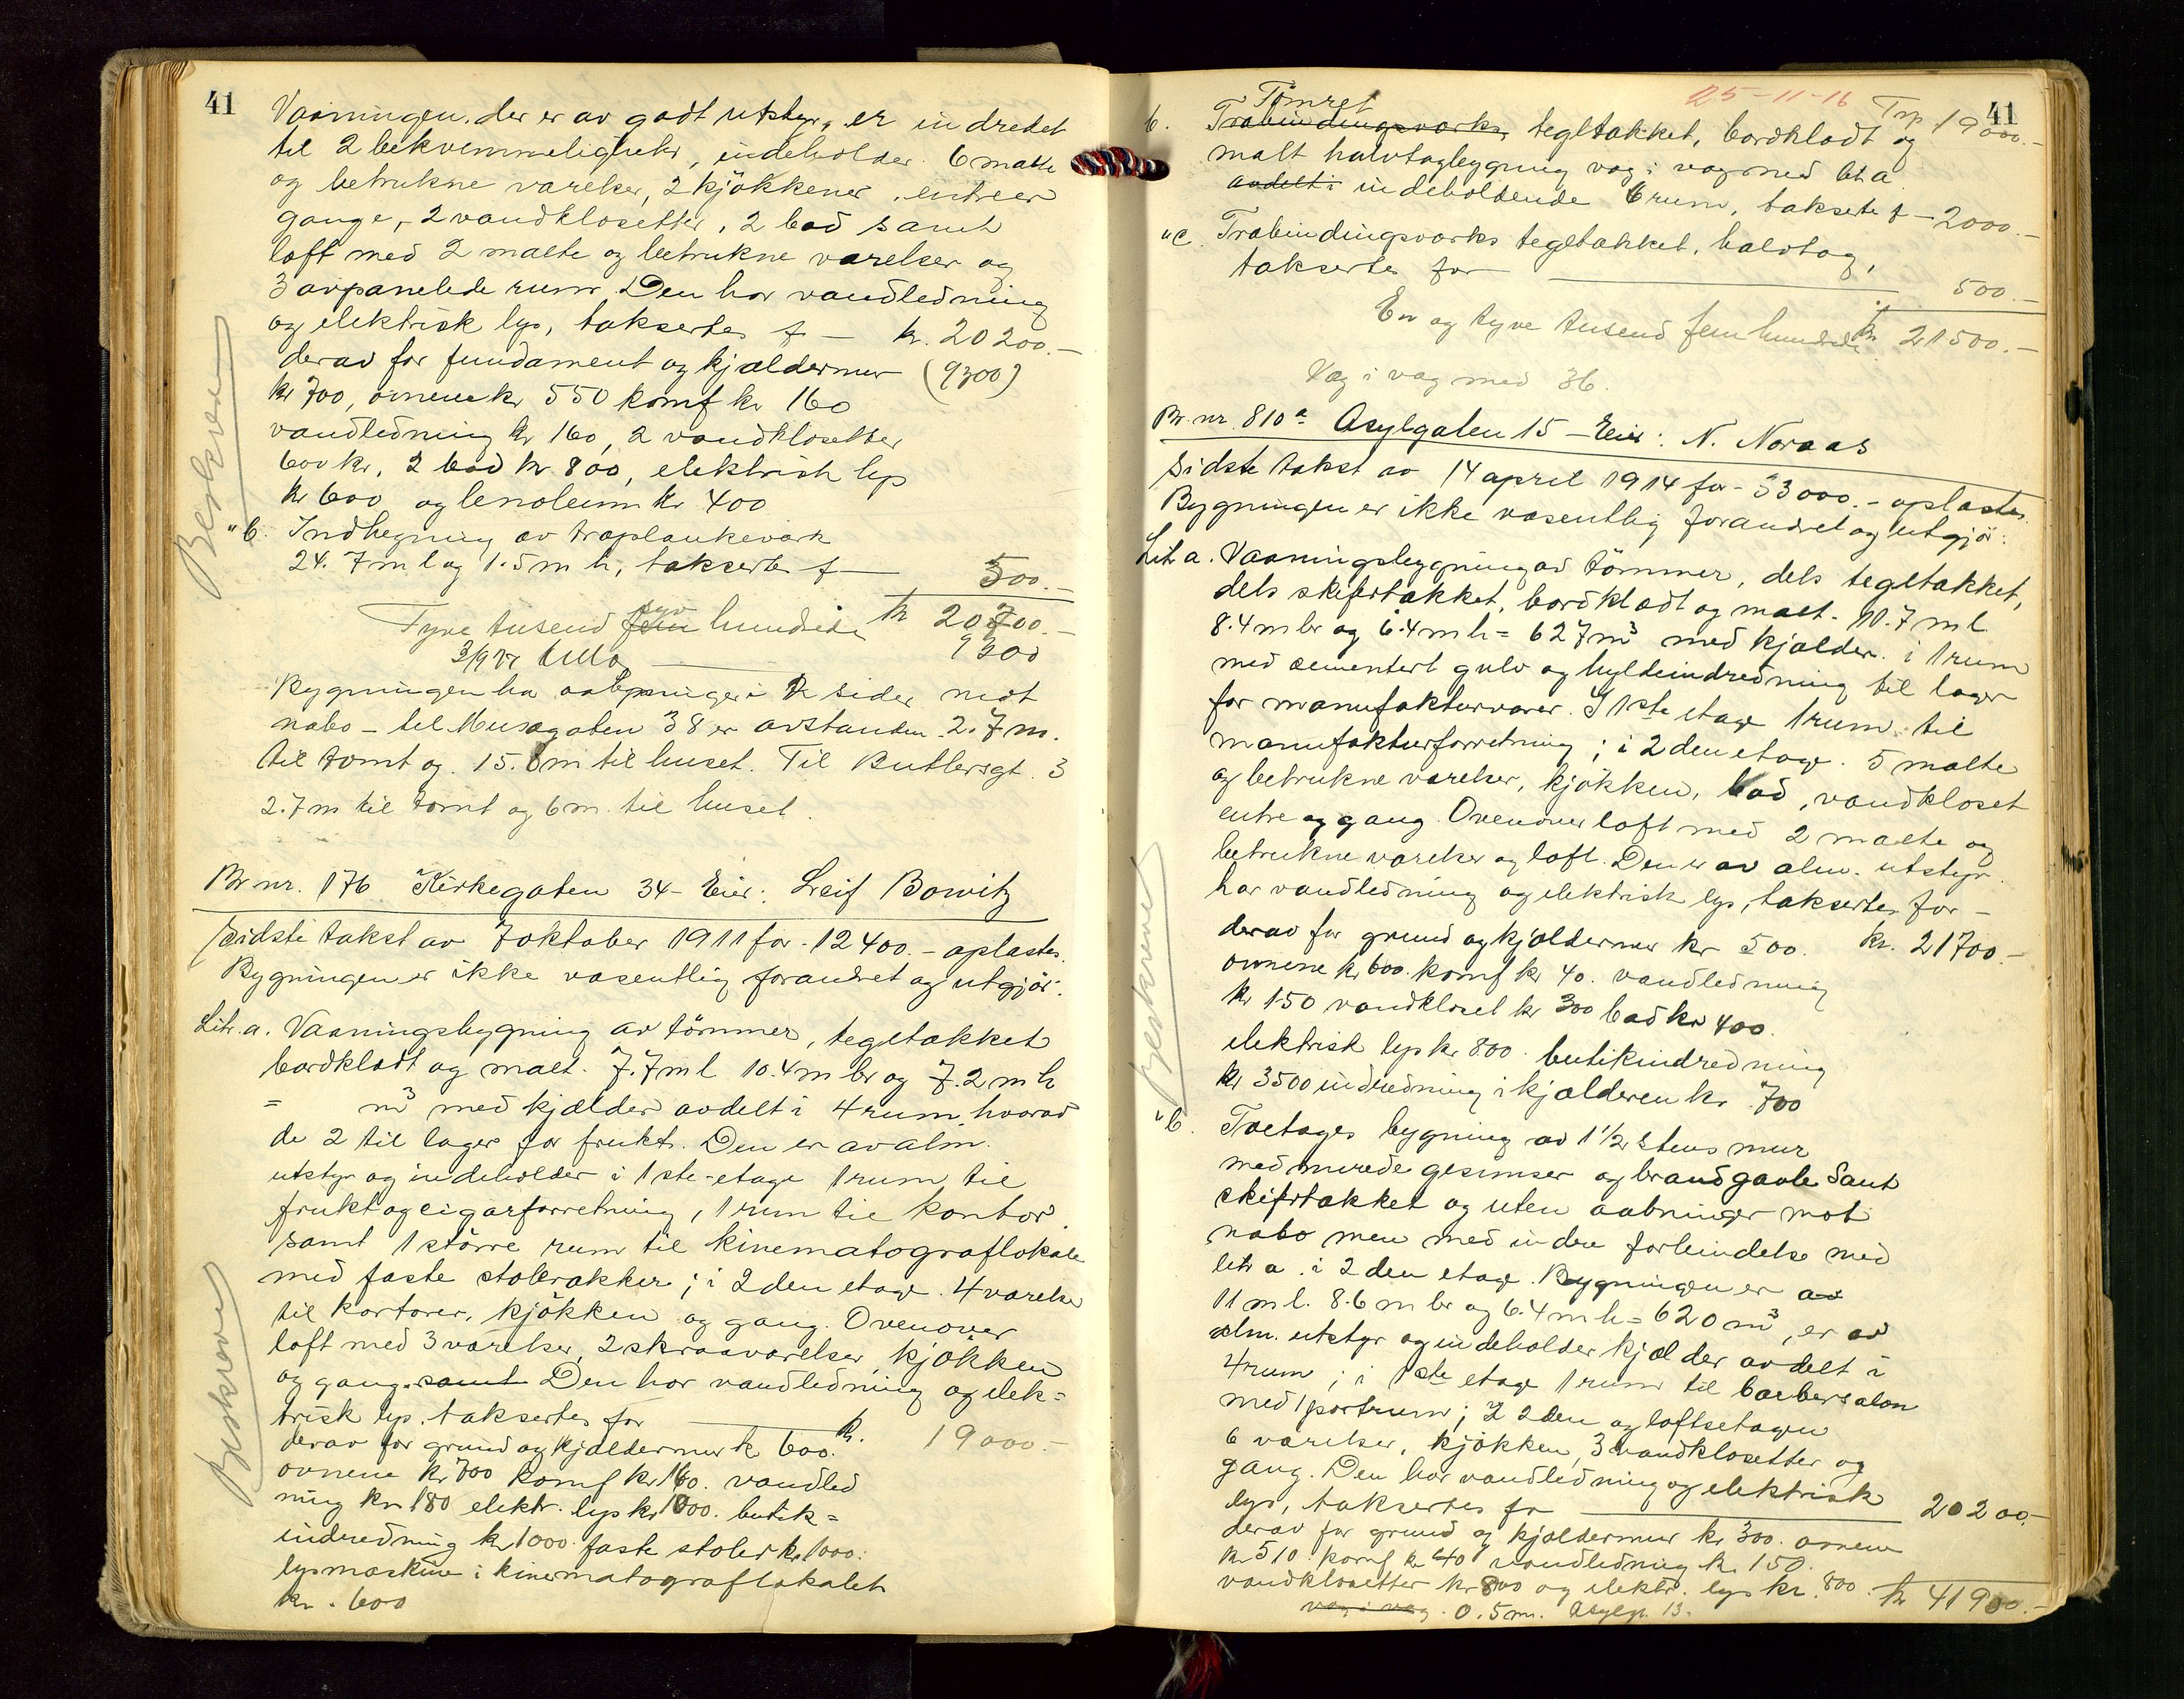 41
Vaaningen, der er av godt utstyr, er indredet
til 2 bekvemmeligheter, indeholder 6 malte
og betrukne værelser, 2 kjökkener, entreer
gange, 2 vandklosetter, 2 bad samt
loft med 2 malte og betrukne værelser og
3 avpanelede rum. Den har vandledning
og elektrisk lys, taksertes f — kr. 20200.—
derav for fundament og kjældermur (9300)
kr 700, ovnene kr 550 komf kr 160
vandledning kr 160, 2 vandklosetter
600 kr, 2 bad kr 800, elektrisk lys
kr 600 og lenoleum kr 400
Beskreven
"b. Indhegning av træplankeværk
24.7 m l og 1.5 m h, taksertes f — 500.—
Tyve tusend fem syv hundrede kr 20700.—
9300
Bygningen har aabninger i 2 sider mot
nabo – til Musegaten 38 er avstanden 2.7 m.
til tomt og 15.8 m til huset. Til Butlersgt. 3
2.7 m til tomt og 6 m. til huset.
Br nr. 176 Kirkegaten 34 – Eier: Leif Bowitz
Sidste takst av 7 oktober 1911 for 12400.– oplæstes.
Bygningen er ikke væsentlig forandret og utgjör:
Litr. a. Vaaningsbygning av tömmer, tegltækket
bordklædt og malt. 7.7 m l 10.4 m br og 7.2 m h
= m³ med kjælder avdelt i 4 rum, hvorav
de 2 til lager for frukt. Den er av alm.
utstyr og indeholder i 1ste etage 1 rum til
frukt og cigarforretning, 1 rum til kontor
samt 1 större rum til kinematograflokale
med faste stolerækker; i 2den etage 4 værelser
til kontorer, kjökken og gang. Ovenover
loft med 3 værelser, 2 skraaværelser, kjökken
og gang. samt Den har vandledning og elek=
trisk lys, taksertes for — kr. 19000.—
derav for grund og kjældermur kr 600.
ovnene kr 700 komf kr 160. vandled
ning kr 180 elektr. lys kr 1000. butik=
indredning kr 1000 faste stoler kr 1000.
lysmaskine i kinematograflokalet
kr. 600
Beskreven
41
25–11–16
Trsp. 19000.—
b. Træbindingsværks Tömret tegltækket, bordklædt og
malt halvtagbygning væg i væg med lit. a
avdelt i indeholdende 6 rum, taksertes f — 2000.—
"c. Træbindingsværks tegltækket, halvtag,
taksertes for — 500.—
En og tyve tusend fem hundrede kr 21500.—
Væg i væg med 36.
Br. nr. 810ª Asylgaten 15 – Eier: N. Noraas
Sidste takst av 14 april 1914 for 33000.– oplæstes.
Bygningen er ikke væsentlig forandret og utgjör:
Litr a. Vaaningsbygning av tömmer, dels tegltækket,
dels skifertækket, bordklædt og malt. 10.7 m l
8.4 m br og 6.4 m h = 627 m³ med kjælder i 1 rum
med cementert gulv og hyldeindredning til lager
for manufakturvarer. I 1ste etage 1 rum til
manufakturforretning; i 2den etage 5 malte
og betrukne værelser, kjökken, bad, vandkloset
entre og gang. Ovenover loft med 2 malte og
betrukne værelser og loft. Den er av alm. utstyr.
har vandledning og elektrisk lys, taksertes for –
derav for grund og kjældermur kr 500. kr. 21700.—
ovnene kr 600. komf kr 40. vandledning
kr 150 vandkloset kr 300 bad kr 400.
elektrisk lys kr 800. butikindredning
kr 3500 indredning i kjælderen kr. 700
Beskreven
"b. Toetages bygning av 1½ stens mur
med murede gesimser og brandgavle samt
skifertækket og uten aabninger mot
nabo men med indre forbindelse med
litr a. i 2den etage. Bygningen er av
11 m l. 8.6 m br og 6.4 m h = 620 m³, er av
alm. utstyr og indeholder kjælder avdelt i
4 rum; i 1ste etage 1 rum til barbersalon
med 1 portrum; I 2den og loftsetagen
6 værelser, kjökken, 3 vandklosetter og
gang. Den har vandledning og elektrisk
lys, taksertes for — 20200.—
derav for grund og kjældermur kr 300. ovnene
kr 510. komf kr 40 vandledning kr. 150.
vandklosetter kr 800 og elektr. lys kr. 800. kr 41900.—
væg i væg. 0.5 m. Asylgt. 13.